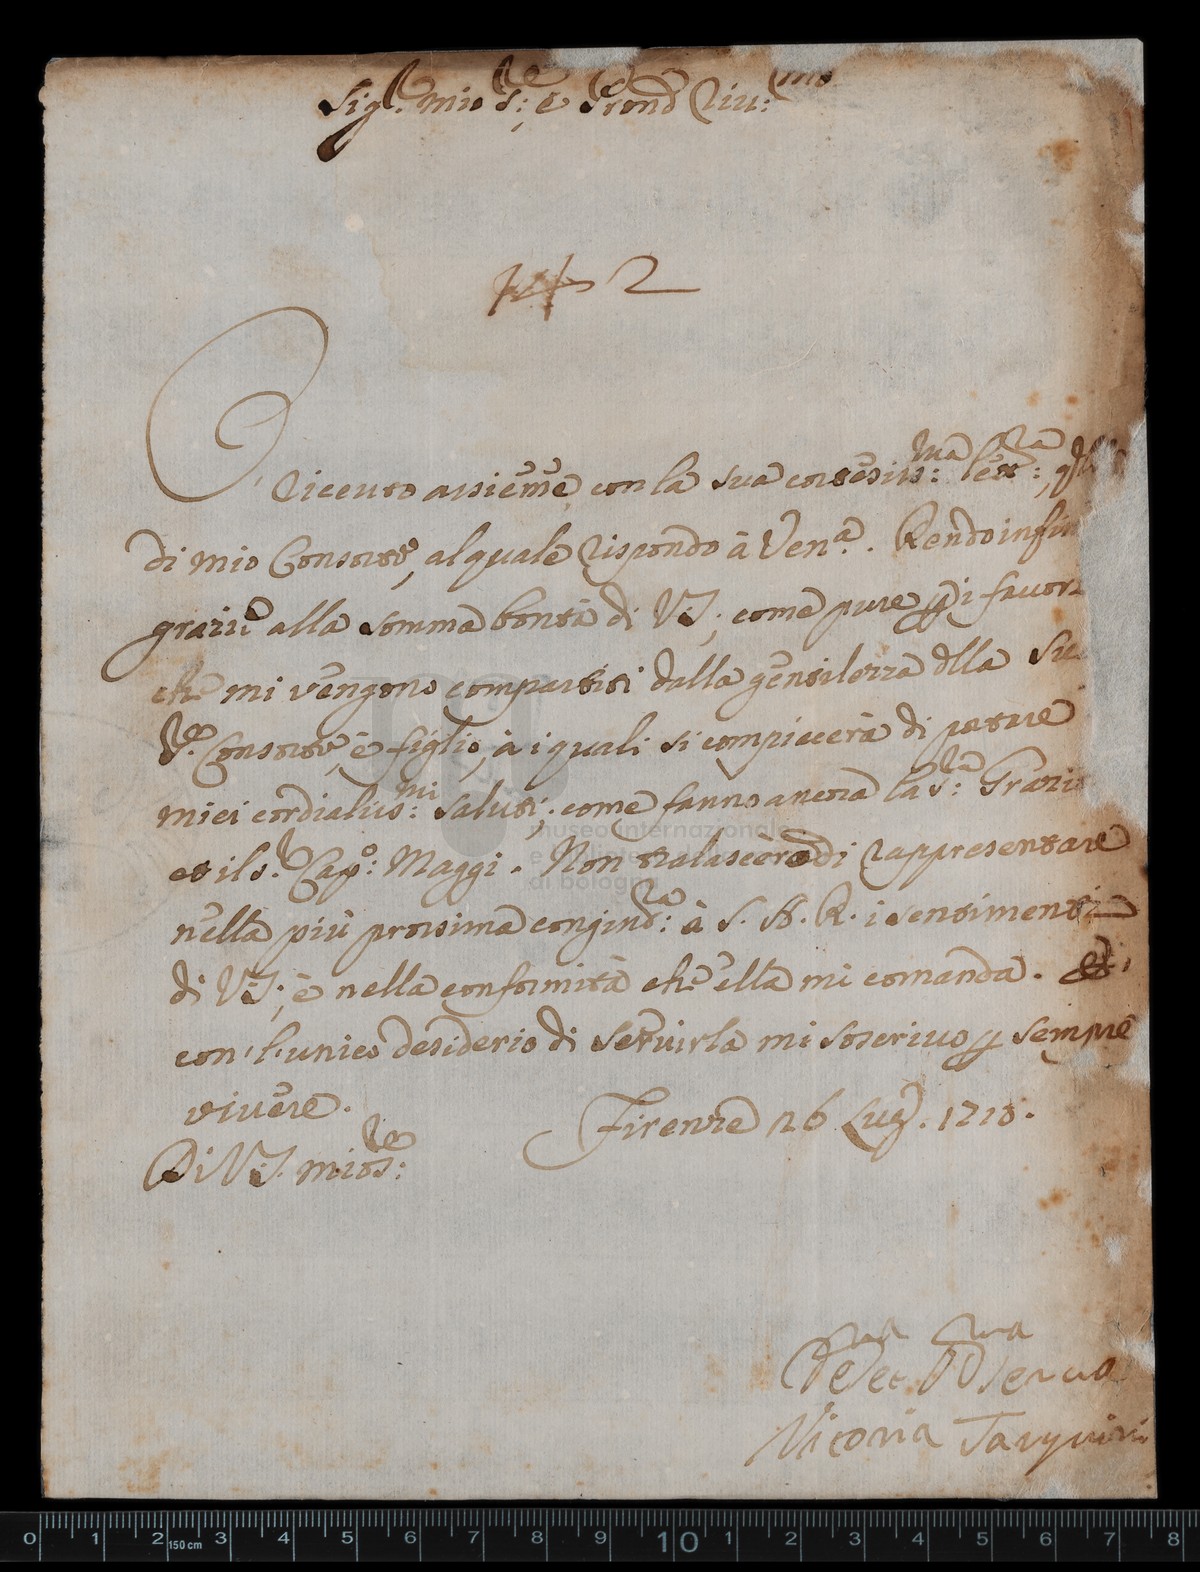 Sig.r mio S.re e Pron Riu:mo
2
Riceuto assieme con la sua cortesiss:ma lett:ra, q
di mio Consorte, al quale rispondo à Ven.a. Rendo infin
grazie alla somma bontà di VS; come pure p i fauor
che mi vengono compartiti dalla gentilezza dlla Su
S.re Consorte, è figlio, à i quali si compiacerà di portare
miei cordialiss:mi saluti; come fanno ancora la S:ra Grazi
et il S.r Cap:o Maggi. Non tralascerò di rappresentare
nella più prossima congiunt:ra à S. A. R. i sentimenti
di VS; è nella conformità che ella mi comanda. Et
con l'unico desiderio di servirla mi soscriuo p sempre
viuere.
Firenze 26 Lug. 1710.
Di VS. mio S:re
Deu.ma et Obb.ma Serua
Vitoria Tarquini
museo internazionale
e biblioteca
di bologna
0 1 2 150 cm 3 4 5 6 7 8 9 10 1 2 3 4 5 6 7 8